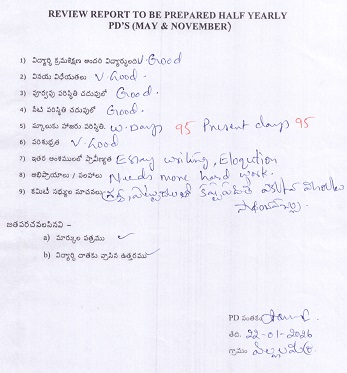 REVIEW REPORT TO BE PREPARED HALF YEARLY
PD'S (MAY & NOVEMBER)
1) విద్యార్థి క్రమశిక్షణ అందరి విద్యార్థులలో V. Good
2) వినయ విధేయతలు V. Good.
3) పూర్వపు పరిస్థితి చదువులో Good.
4) నేటి పరిస్థితి చదువులో Good.
5) స్కూలుకు హాజరు పరిస్థితి. W. Days 95 Present days 95
6) పరిశుభ్రత V. Good
7) ఇతర అంశములలో ప్రావీణ్యత Essay writing, Eloqution
8) అభిప్రాయాలు / సలహాలు Needs more hard work.
9) కమిటీ సభ్యుల సూచనలు
జతపరచవలసినవి -
a) మార్కుల పత్రము ✓
b) విద్యార్థి దాతకు వ్రాసిన ఉత్తరము ✓
PD సంతకం
తేది. 22-01-2026
గ్రామం